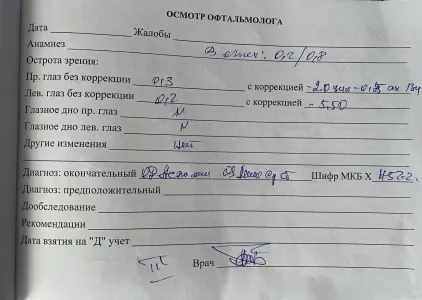 ОСМОТР ОФТАЛЬМОЛОГА
Дата Жалобы
Анамнез
В очках: 0,2/0,8
Острота зрения:
Пр. глаз без коррекции 0,3 с коррекцией -2.0
Лев. глаз без коррекции 0,2 с коррекцией -5,50
Глазное дно пр. глаз N
Глазное дно лев. глаз N
Другие изменения нет
Диагноз: окончательный Шифр МКБ X H52.2.
Диагноз: предположительный
Дообследование
Рекомендации
Дата взятия на "Д" учет
III Врач